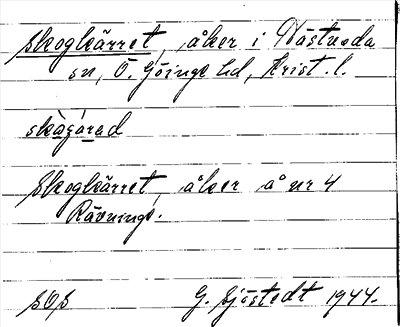 Skogkärret, åker i Västra
sn, Ö. Göinge hd, Krist. l.
skàgárad
Skogkärret, åker å nr 4
Rävninge.
G. Sjöstedt 1944.